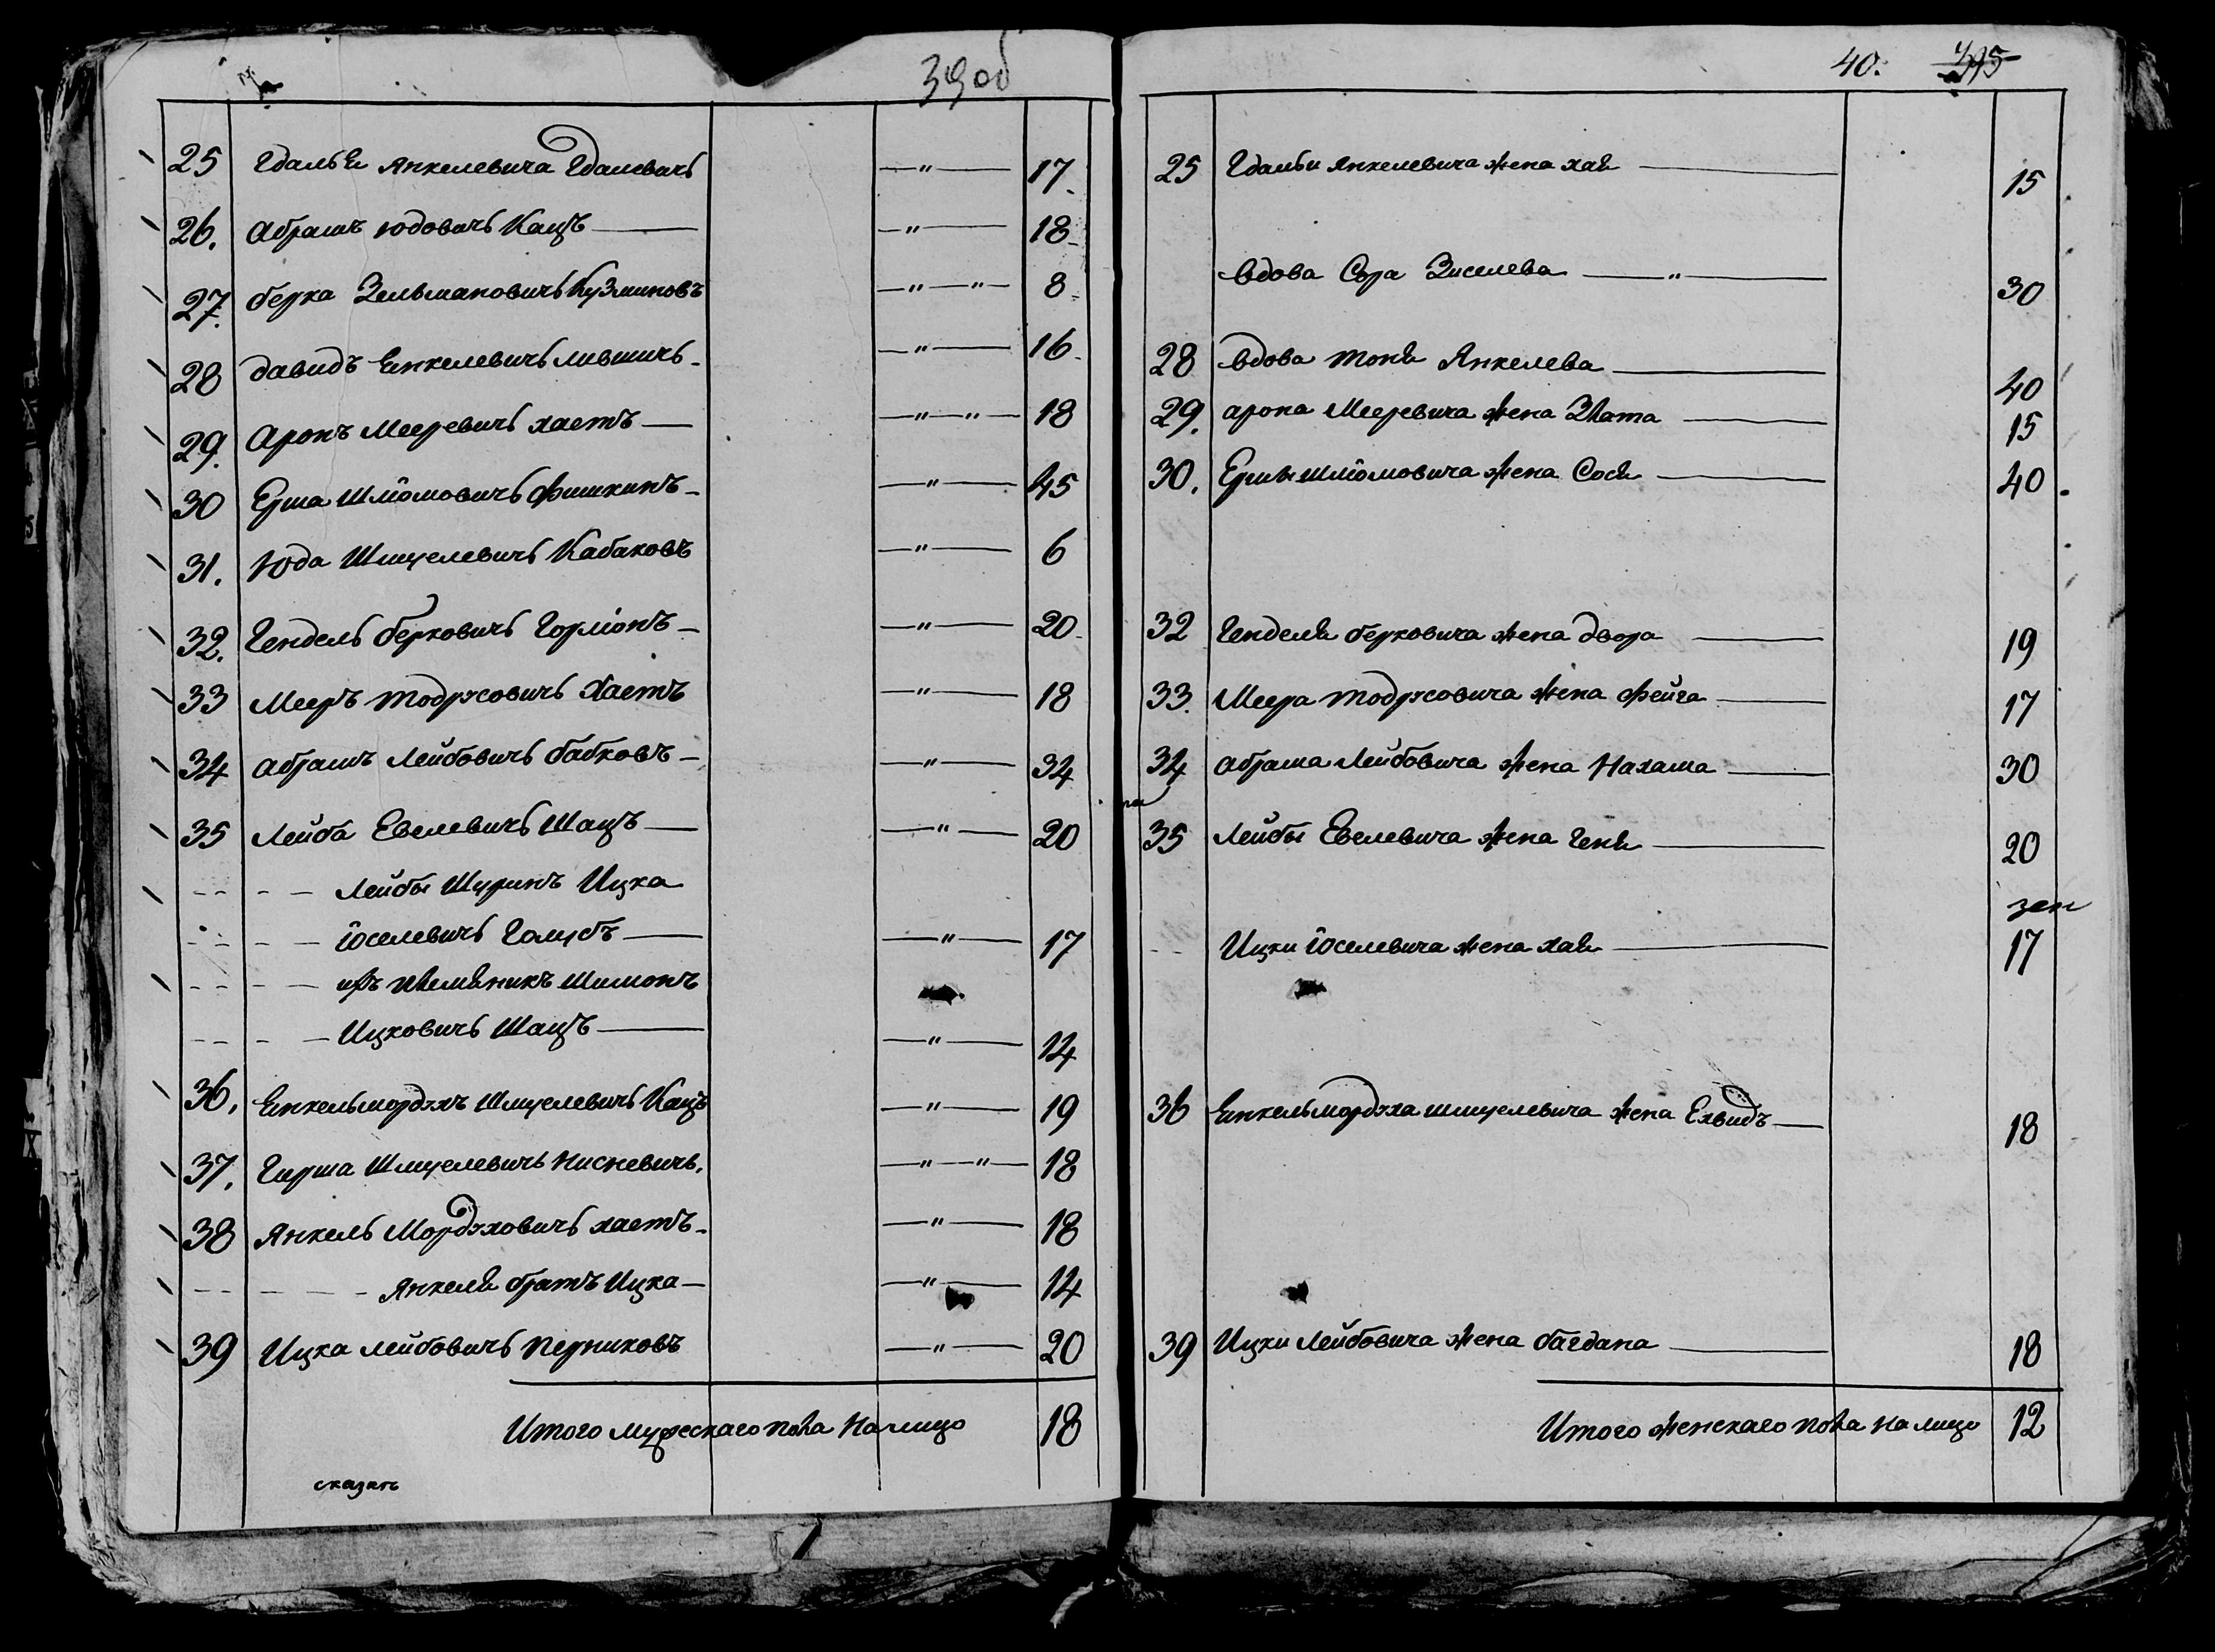 39 об
25 Гдалья Янкелевича Гдалевичь — " — 17
26. Абрамъ Юдовичь Кацъ — " — 18
27. Берка Зельмановичь Кузминовъ — " — " — 8
28 Давидъ Енкелевичь Лившичь — " — 16
29. Аронъ Мееревичь Хаетъ — " — " — 18
30 Ерша Шліомовичь Фишкинъ — " — 45
31. Юда Шмуелевичь Кабаковъ — " — 6
32. Гендель Берковичь Горліонъ — " — 20
33 Мееръ Тодрэсовичь Хаетъ — " — 18
34 Абрамъ Лейбовичь Бабковъ — " — 34
35 Лейба Евелевичь Шацъ — " — 20
Лейбы Шуринъ Ицка
Іоселевичь Голубъ — " — 17
ихъ племяникъ Шимонъ
Ицковичь Шацъ — " — 14
36. Енкельмордэхъ Шмуелевичь Кацъ — " — 19
37. Гирша Шмуелевичь Нисневичь. — " — " — 18
38 Янкель Мордэховичь Хаетъ — " — 18
Янкеля братъ Ицка — " — 14
39 Ицка Лейбовичь Перниковъ — " — 20
Итого мужескаго пола на лицо 18
сказать
40. 395
25 Гдальи Янкелевича жена Хая — 15
Вдова Сора Зиселева — " — 30
28 Вдова Тоня Янкелева — 40
29. Арона Мееревича жена Злата — 15
30. Ерши Шліомовича жена Сося — 40
32 Генделя Берковича жена Двора — 19
33. Меера Тодрэсовича жена Фейга — 17
34 Абрама Лейбовича жена Нахама — 30
35 Лейбы Евелевича жена Геня — 20
Ицки Іоселевича жена Хая — 17
36 Енкельмордэха Шмуелевича жена Ехвидъ — 18
39 Ицки Лейбовича жена Багдана — 18
Итого женскаго пола на лицо 12